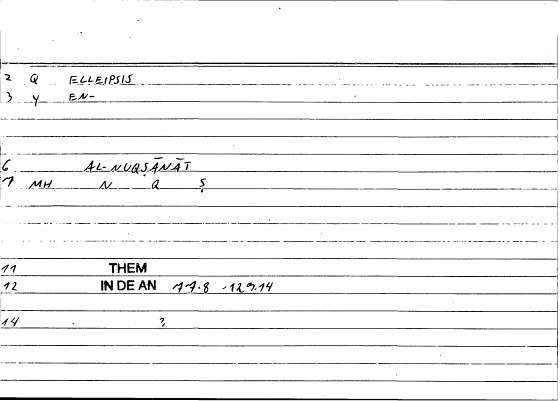 2 Q ELLEIPSIS
3 Y EN-
6 AL-NUQṢĀNĀT
7 MH N Q Ṣ
11 THEM
12 IN DE AN 77.8
14 ?